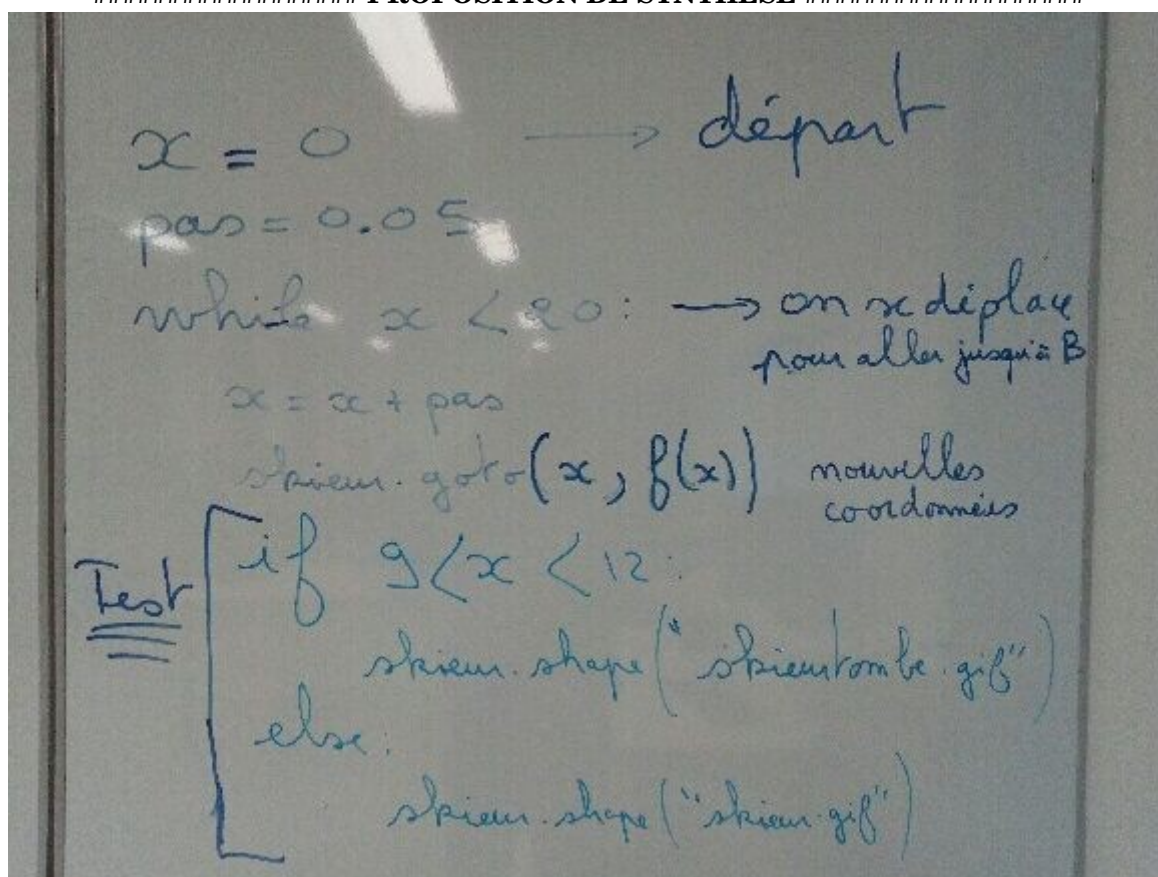 PROPOSITION DE SYNTHÈSE
x = 0 → départ
pas = 0.05
while x < 20: → on se déplace
pour aller jusqu'à B
x = x + pas
skieur.goto(x, f(x)) nouvelles
coordonnées
Test
if 9<x<12:
skieur.shape("skieurtombe.gif")
else:
skieur.shape("skieur.gif")